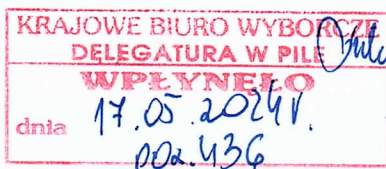 KRAJOWE BIURO WYBORCZE
DELEGATURA W PILE
WPŁYNĘŁO
dnia 17.05.2024r.
poz. 436